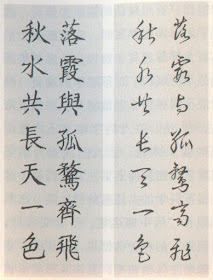 落霞與孤鶩齊飛
秋水共長天一色
落霞与孤鶩齊飛
秋水共長天一色